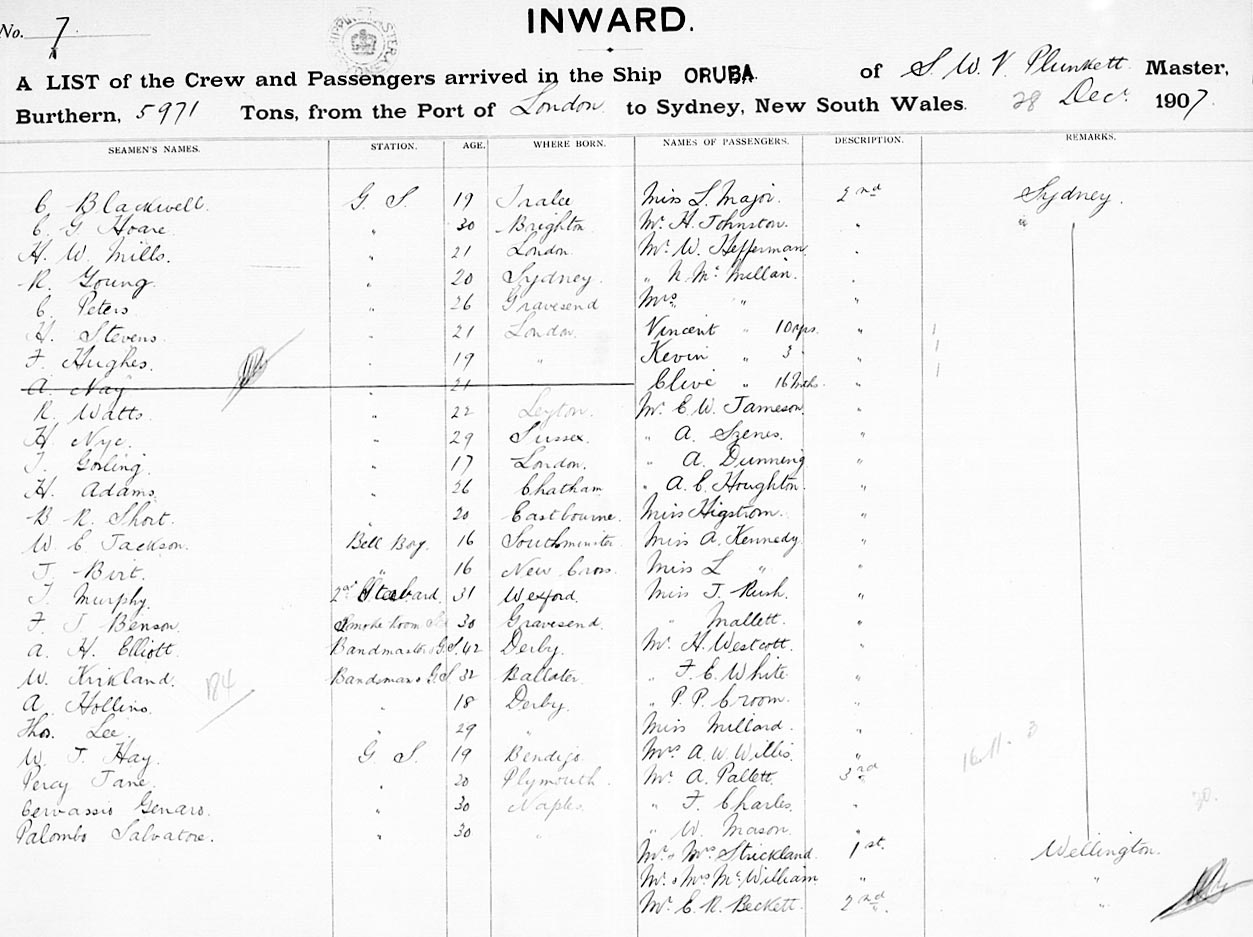 INWARD.
No. 7.
A LIST of the Crew and Passengers arrived in the Ship ORUBA. of S. W. V. Plunkett Master,
Burthern, 5971 Tons, from the Port of London to Sydney, New South Wales. 28 Decr. 1907.
SEAMEN'S NAMES. STATION. AGE. WHERE BORN. NAMES OF PASSENGERS. DESCRIPTION. REMARKS.
C Blackwell. G. S. 19 Tralee Miss L. Major. 2nd Sydney.
C. G Hoare. " 30 Brighton Mr. H. Johnston. " "
H. W. Mills. " 21 London. Mr. W. Hefferman. "
R. Young. " 20 Sydney. " N. Mc. Millan. "
C. Peters. " 26 Gravesend Mrs " "
H. Stevens. " 21 London. Vincent " 10 yrs. " 1
F. Hughes. " 19 " Kevin " 3 " " 1
A. Nay " 21 Clive " 16 Mths. " 1
R. Watts. " 22 Leyton. Mr. E. W. Jameson. "
H. Nye. " 29 Sussex. " A. Szenes. "
T. Gosling. " 17 London. " A. Dunning "
H. Adams. " 26 Chatham " A. C. Houghton. "
B. R. Short. " 20 Eastbourne. Miss Higstrom. "
W. C. Jackson. Bell Boy. 16 Southminster Miss A. Kennedy. "
J. Birt. " 16 New Cross. Miss L " "
J. Murphy. 2nd 31 Wexford. Miss J. Rush. "
F. J. Benson. Smoke Room 30 Gravesend. " Mallett. "
A. H. Elliott. Bandmaster G.S. 42 Derby. Mr. H. Westcott. "
W. Kirkland. Bandsman G.S. 32 Ballater. " F. E. White "
A. Hollins. " 18 Derby. " P. P. Croom. "
Thos. Lee. " 29 " Miss Millard. "
W. J. Hay. G. S. 19 Bendigo. Mrs A. W. Willis. "
Percy Jane. " 20 Plymouth. Mr. A. Pallett. 3rd
Gervassio Genaro. " 30 Naples. " F. Charles. "
Palombo Salvatore. " 30 " " W. Mason. "
Mr. & Mrs. Strickland. 1st. Wellington.
Mr. & Mrs Mc. William " "
Mr. E. R. Beckett. 2nd. "